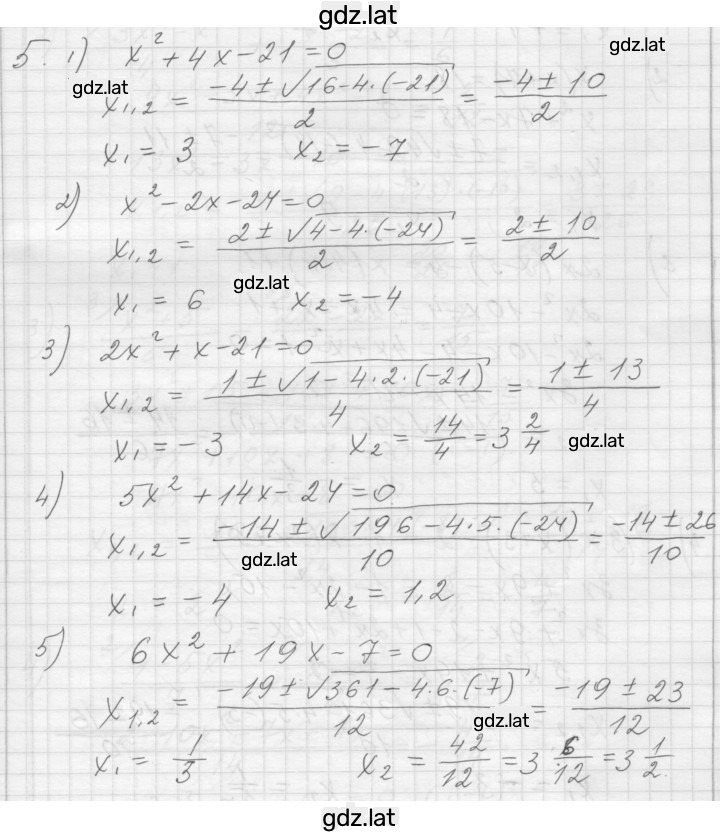 gdz.lat
5. 1) x² + 4x - 21 = 0
gdz.lat
gdz.lat
x₁,₂ = (-4 ± √(16 - 4·(-21)))/2 = (-4 ± 10)/2
x₁ = 3 x₂ = -7
2) x² - 2x - 24 = 0
x₁,₂ = (2 ± √(4 - 4·(-24)))/2 = (2 ± 10)/2
gdz.lat
x₁ = 6 x₂ = -4
3) 2x² + x - 21 = 0
x₁,₂ = (1 ± √(1 - 4·2·(-21)))/4 = (1 ± 13)/4
x₁ = -3 x₂ = 14/4 = 3 2/4
gdz.lat
4) 5x² + 14x - 24 = 0
x₁,₂ = (-14 ± √(196 - 4·5·(-24)))/10 = (-14 ± 26)/10
gdz.lat
x₁ = -4 x₂ = 1,2
5) 6x² + 19x - 7 = 0
x₁,₂ = (-19 ± √(361 - 4·6·(-7)))/12 = (-19 ± 23)/12
gdz.lat
x₁ = 1/3 x₂ = 42/12 = 3 6/12 = 3 1/2
gdz.lat